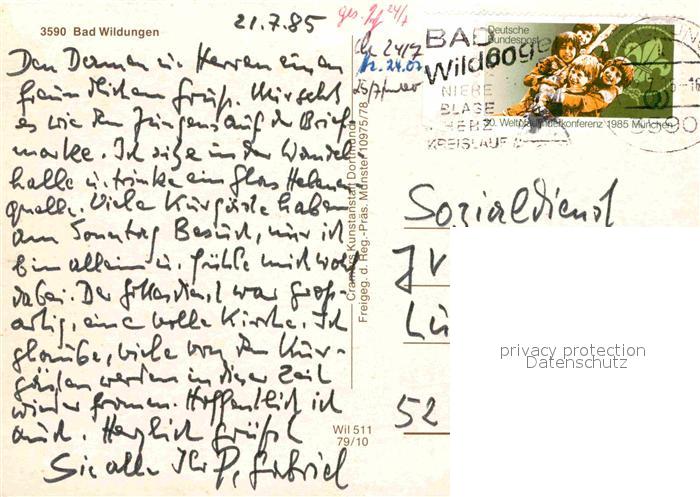 21.7.85
ges. 24/7
24/7
24.07
3590 Bad Wildungen
Den Damen u. Herren einen
freundlichen Gruß. Mir geht
es wie den Jungens auf der Brief-
marke. Ich sitze in der Wandel-
halle u. trinke ein Glas Helenen
quelle. Viele Kurgäste haben
am Sonntag Besuch, nur ich
bin allein u. fühle mich wohl
dabei. Der Gottesdienst war groß-
artig, eine volle Kirche. Ich
glaube, viele von den Kur-
gästen werden in dieser Zeit
wieder fromm. Hoffentlich ich
auch. Herzlich grüßt
Sie alle Ihr P. Gabriel
Cramers Kunstanstalt Dortmund
Freigeg. d. Reg.-Präs. Münster 10975/78
Wil 511
79/10
Deutsche
Bundespost
60
30. Weltpfadfinderkonferenz 1985 München
BAD
Wildungen
NIERE
BLASE
HERZ
KREISLAUF
Sozialdienst
52
privacy protection
Datenschutz